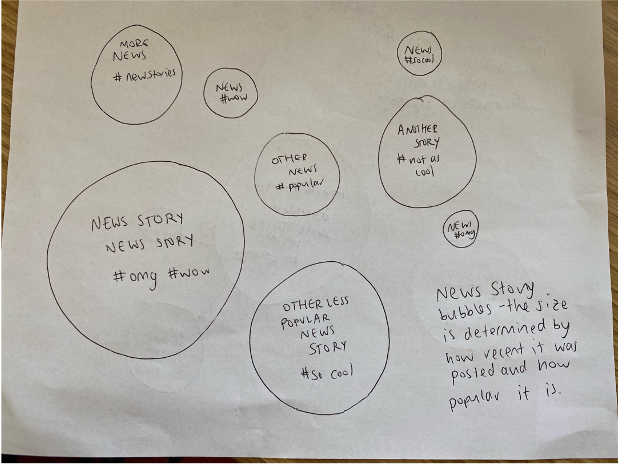 MORE
NEWS
# newstories
NEWS
#wow
NEWS
#so cool
OTHER
NEWS
# popular
ANOTHER
STORY
# not as
cool
NEWS STORY
NEWS STORY
#omg #wow
NEWS
#omg
OTHER LESS
POPULAR
NEWS
STORY
#So cool
News Story
bubbles - the size
is determined by
how recent it was
posted and how
popular it is.